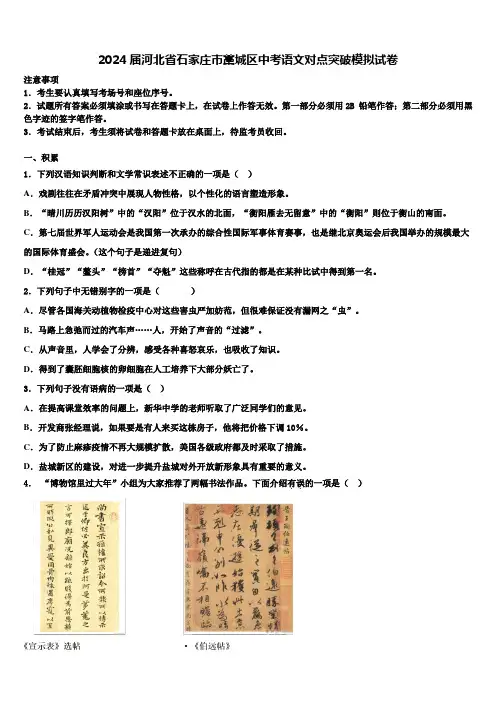 2024 届河北省石家庄市藁城区中考语文对点突破模拟试卷
注意事项
1．考生要认真填写考场号和座位序号。
2．试题所有答案必须填涂或书写在答题卡上，在试卷上作答无效。第一部分必须用2B 铅笔作答；第二部分必须用黑
色字迹的签字笔作答。
3．考试结束后，考生须将试卷和答题卡放在桌面上，待监考员收回。
一、积累
1．下列汉语知识判断和文学常识表述不正确的一项是（ ）
A．戏剧往往在矛盾冲突中展现人物性格，以个性化的语言塑造形象。
B．“晴川历历汉阳树”中的“汉阳”位于汉水的北面，“衡阳雁去无留意”中的“衡阳”则位于衡山的南面。
C．第七届世界军人运动会是我国第一次承办的综合性国际军事体育赛事，也是继北京奥运会后我国举办的规模最大
的国际体育盛会。（这个句子是递进复句）
D．“桂冠”“鳌头”“榜首”“夺魁”这些称呼在古代指的都是在某种比试中得到第一名。
2．下列句子中无错别字的一项是（ ）
A．尽管各国海关动植物检疫中心对这些害虫严加妨范，但很难保证没有漏网之“虫”。
B．马路上急弛而过的汽车声……人，开始了声音的“过滤”。
C．从声音里，人学会了分辨，感受各种喜怒哀乐，也吸收了知识。
D．得到了囊胚细胞核的卵细胞在人工培养下大部分妖亡了。
3．下列句子没有语病的一项是（ ）
A．在提高课堂效率的问题上，新华中学的老师听取了广泛同学们的意见。
B．开发商张经理说，如果要是有人来买这栋房子，他将把价格下调10%。
C．为了防止麻疹疫情不再大规模扩散，美国各级政府都及时采取了措施。
D．盐城新区的建设，对进一步提升盐城对外开放新形象具有重要的意义。
4． “博物馆里过大年”小组为大家推荐了两幅书法作品。下面介绍有误的一项是（ ）
《宣示表》选帖 ·《伯远帖》